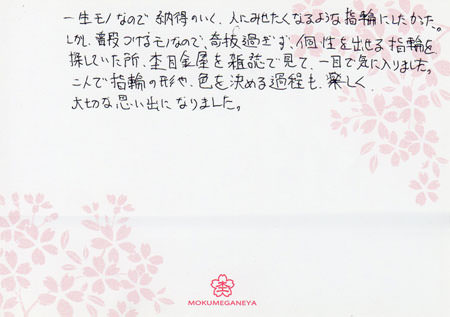 一生モノなので納得のいく、人にみせたくなるような指輪にしたかった。
しかし、普段つけるモノなので、奇抜過ぎず、個性を出せる指輪を
探していた所、杢目金屋を雑誌で見て、一目で気に入りました。
二人で指輪の形や、色を決める過程も、楽しく
大切な思い出になりました。
杢
MOKUMEGANEYA